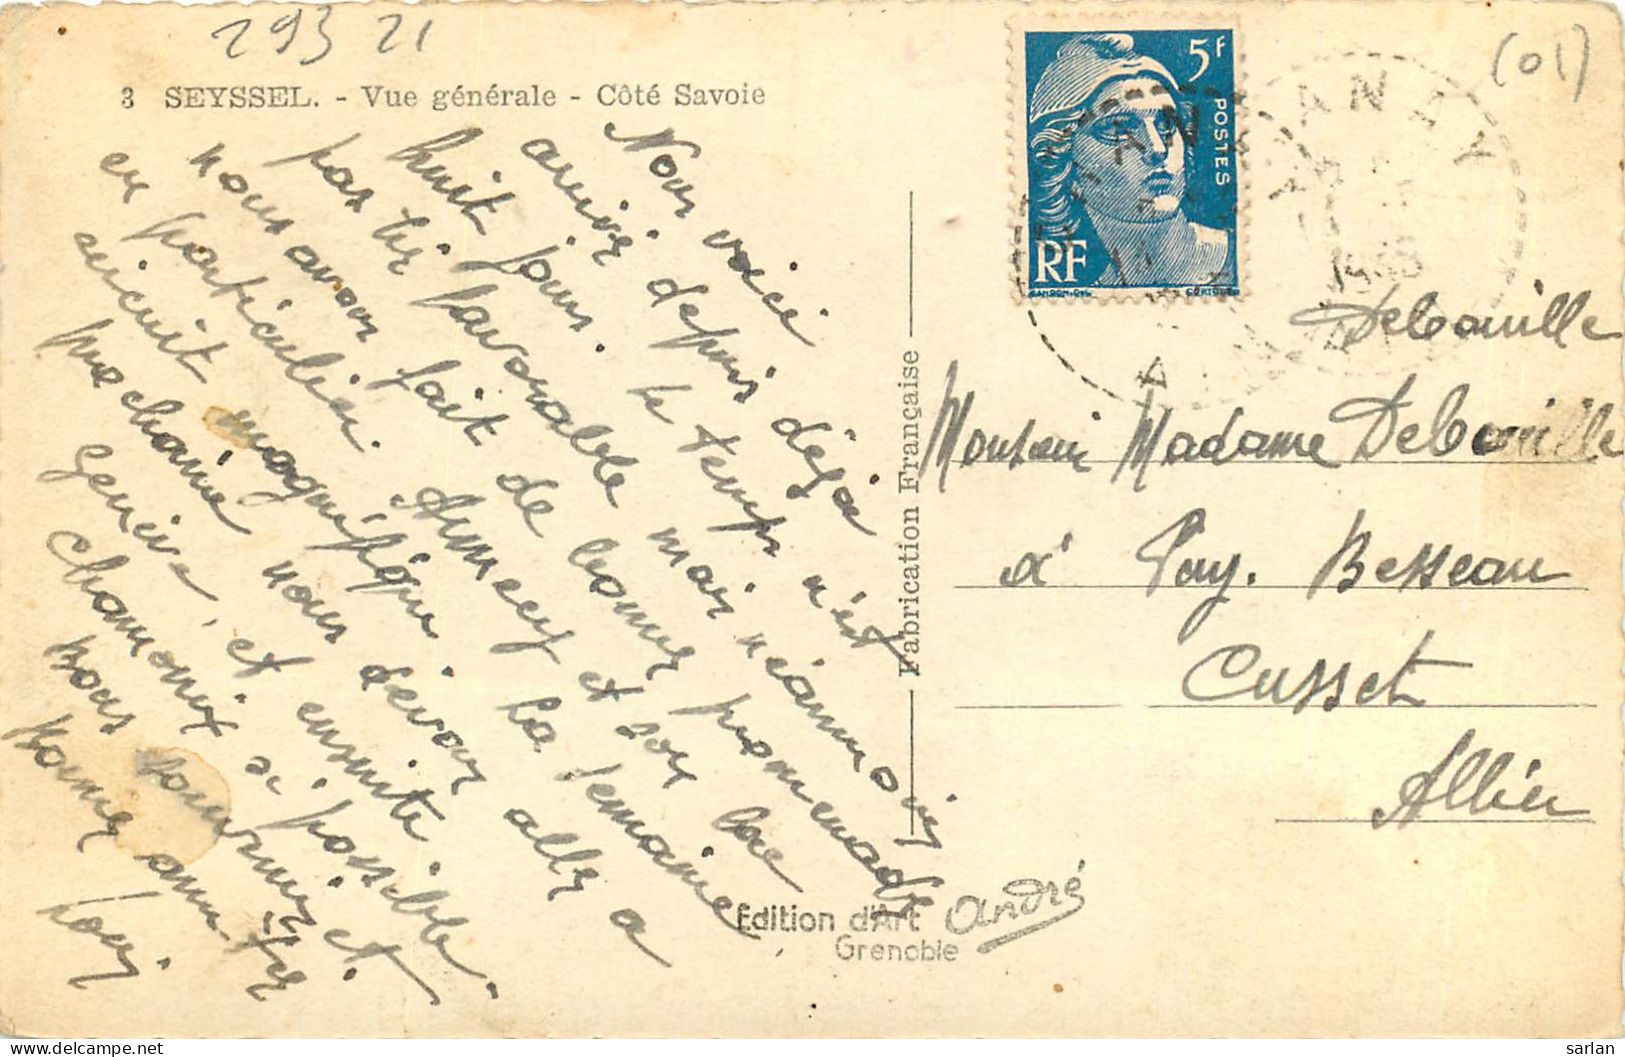 293 21
(01)
3 SEYSSEL. - Vue générale - Côté Savoie
Nous voici
arrivé depuis déjà
huit jours. le temps n'est
pas très favorable mais néanmoins
nous avons fait de bonnes promenades
en particulier Annecy et son lac
circuit magnifique. La semaine
prochaine nous devons aller a
Genève, et ensuite
Chamonix si possible.
Nous et
bonnes
Fabrication Française
Edition d'Art André
Grenoble
5F
POSTES
RF
GANDON-DEL
ANAY
Debouille
Monsieur Madame Debouille
à Puy. Besseau
Cusset
Allier
sarlan